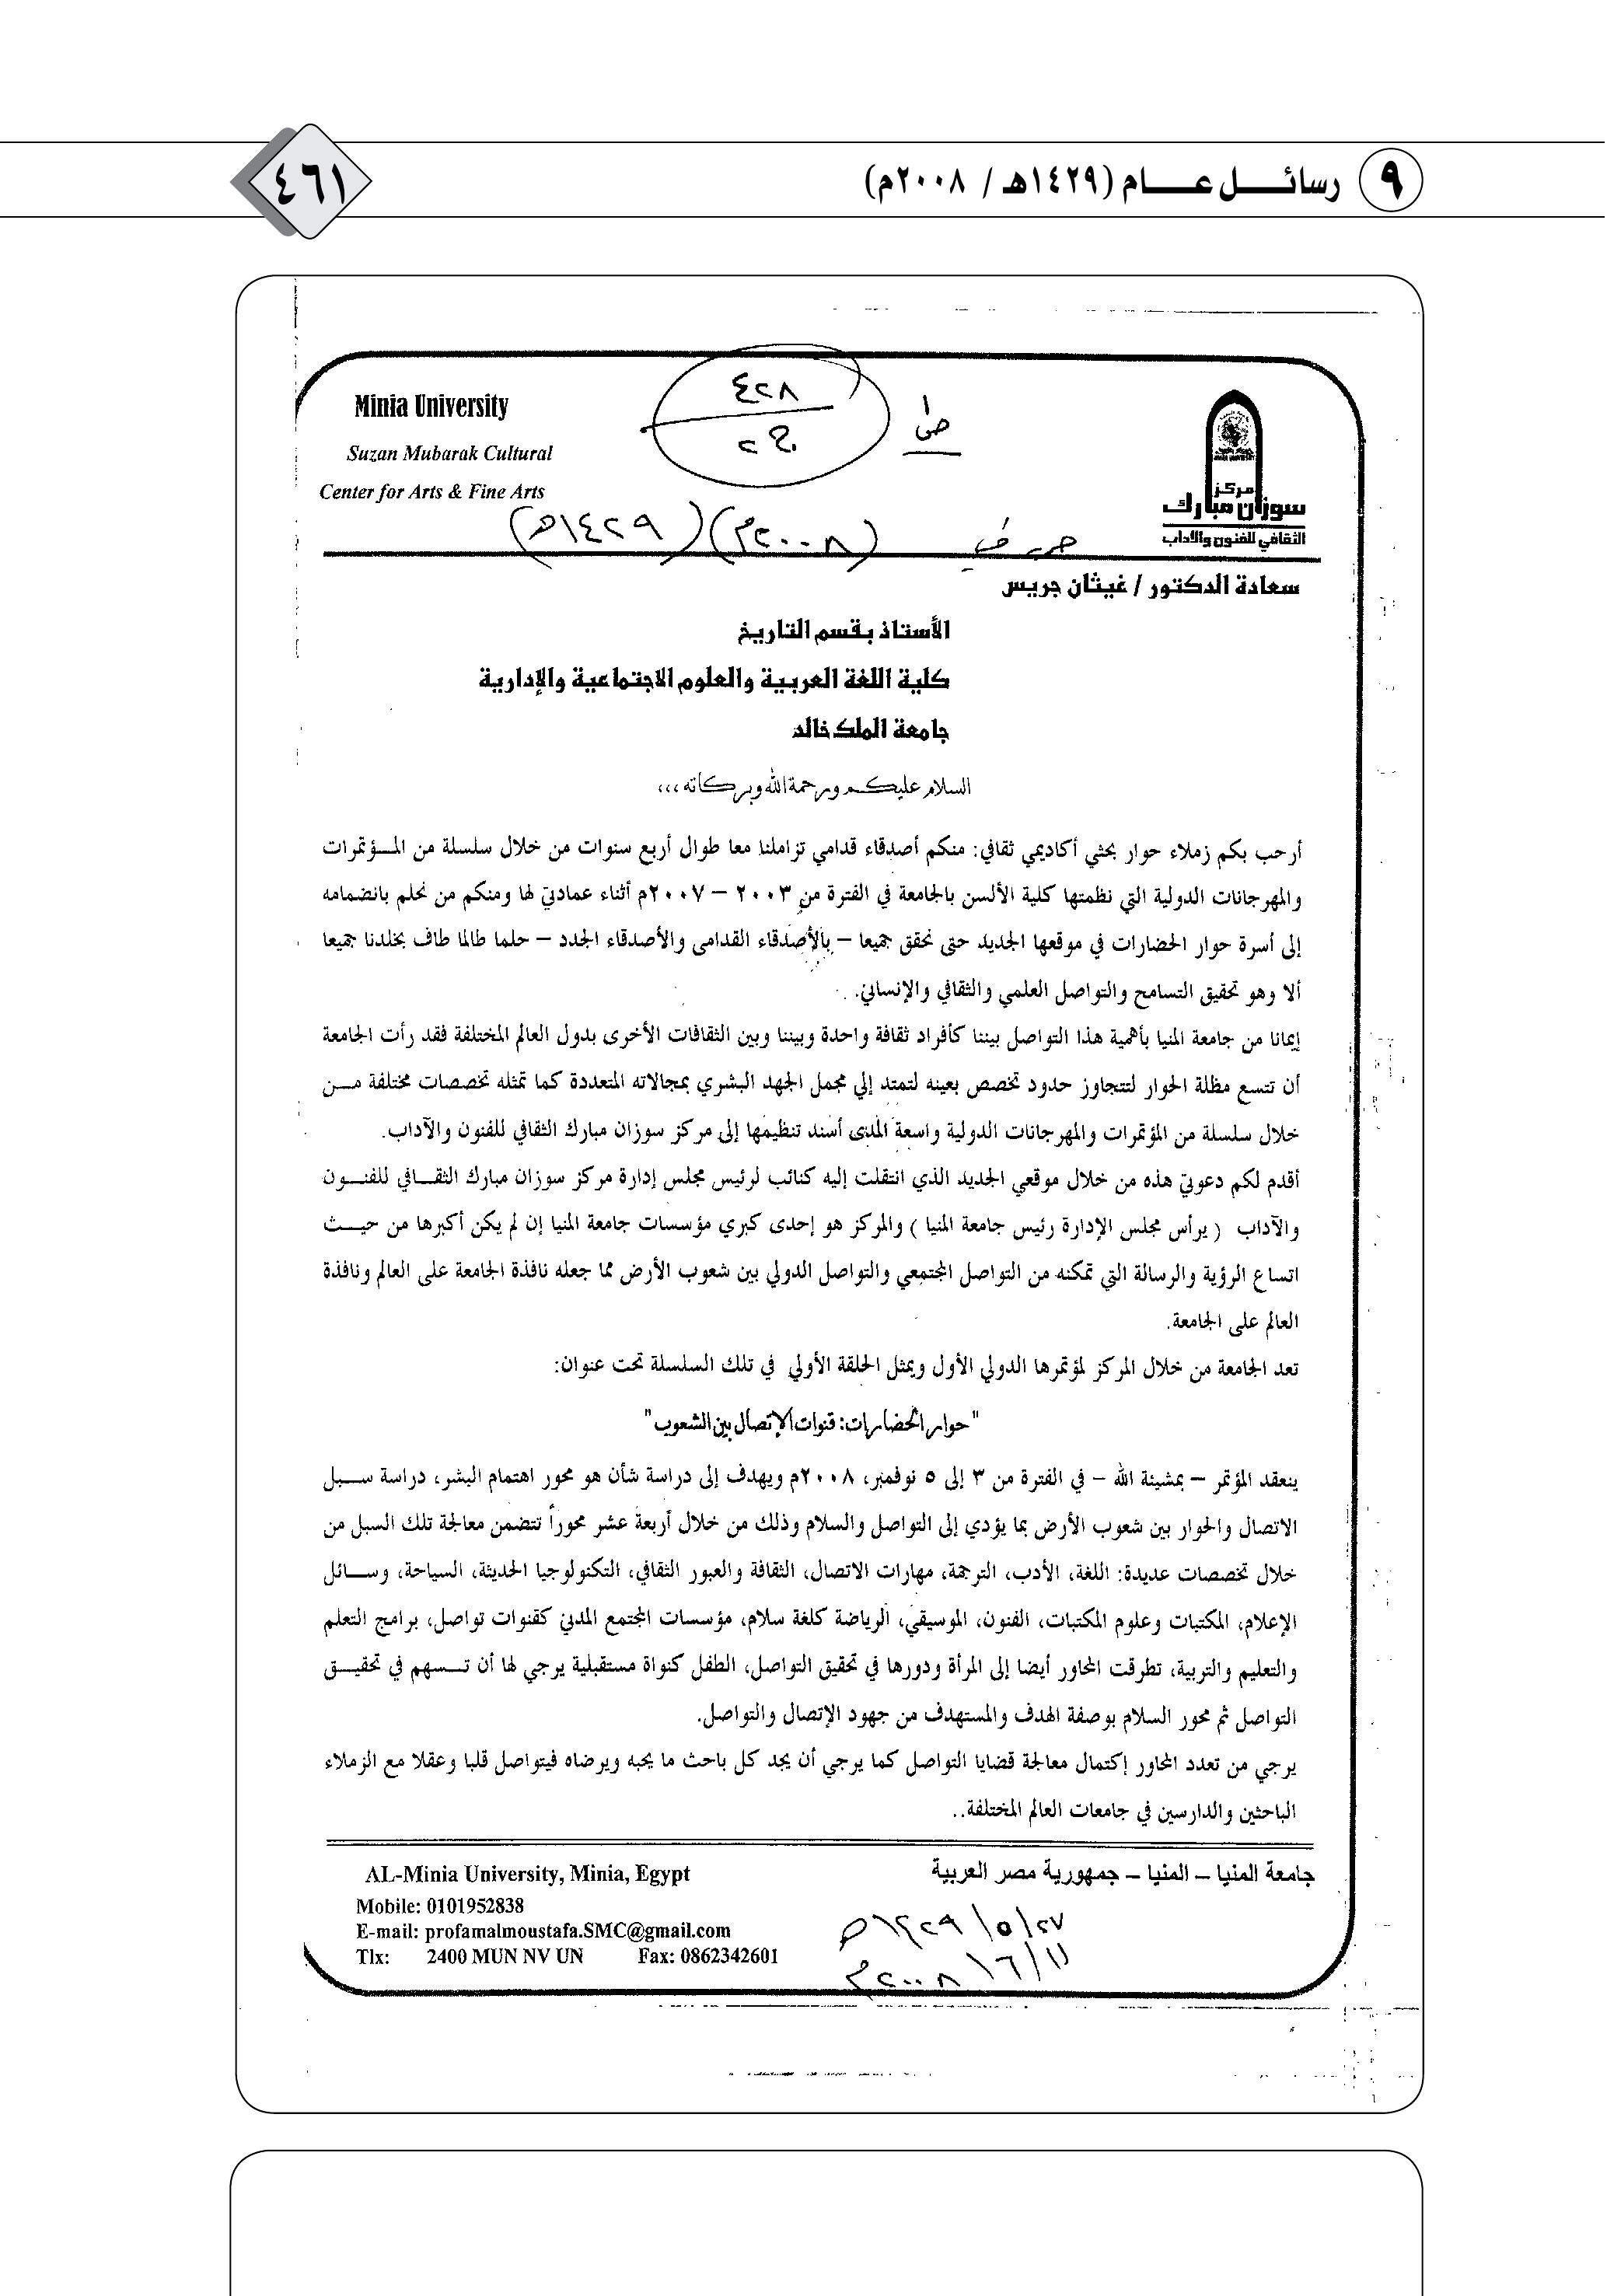 ٩ رسائـــل عـــام (١٤٢٩هـ / ٢٠٠٨م)
٤٦١
Minia University
Suzan Mubarak Cultural
Center for Arts & Fine Arts
٤٢٨
مركز
سوزان مبارك
الثقافي للفنون والآداب
(١٤٢٩هـ) (٢٠٠٨م)
سعادة الدكتور / غيثان جريس
الأستاذ بقسم التاريخ
كلية اللغة العربية والعلوم الاجتماعية والإدارية
جامعة الملك خالد
السلام عليكم ورحمة الله وبركاته ،،،
أرحب بكم زملاء حوار بحثي أكاديمي ثقافي: منكم أصدقاء قدامي تزاملنا معا طوال أربع سنوات من خلال سلسلة من المـؤتمرات
والمهرجانات الدولية التي نظمتها كلية الألسن بالجامعة في الفترة من ٢٠٠٣ – ٢٠٠٧م أثناء عمادتي لها ومنكم من نحلم بانضمامه
إلى أسرة حوار الحضارات في موقعها الجديد حتى نحقق جميعا – بالأصدقاء القدامى والأصدقاء الجدد – حلما طالما طاف بخلدنا جميعا
ألا وهو تحقيق التسامح والتواصل العلمي والثقافي والإنساني.
إيمانا من جامعة المنيا بأهمية هذا التواصل بيننا كأفراد ثقافة واحدة وبيننا وبين الثقافات الأخرى بدول العالم المختلفة فقد رأت الجامعة
أن تتسع مظلة الحوار لتتجاوز حدود تخصص بعينه لتمتد إلي مجمل الجهد البشري بمجالاته المتعددة كما تمثله تخصصات مختلفة مـن
خلال سلسلة من المؤتمرات والمهرجانات الدولية واسعة المدى أسند تنظيمها إلى مركز سوزان مبارك الثقافي للفنون والآداب.
أقدم لكم دعوتي هذه من خلال موقعي الجديد الذي انتقلت إليه كنائب لرئيس مجلس إدارة مركز سوزان مبارك الثقـافي للفنـون
والآداب ( يرأس مجلس الإدارة رئيس جامعة المنيا ) والمركز هو إحدى كبري مؤسسات جامعة المنيا إن لم يكن أكبرها من حيـث
اتساع الرؤية والرسالة التي تمكنه من التواصل المجتمعي والتواصل الدولي بين شعوب الأرض مما جعله نافذة الجامعة على العالم ونافذة
العالم على الجامعة.
تعد الجامعة من خلال المركز لمؤتمرها الدولي الأول ويمثل الحلقة الأولي في تلك السلسلة تحت عنوان:
"حوار الحضارات: قنوات الإتصال بين الشعوب"
ينعقد المؤتمر – بمشيئة الله – في الفترة من ٣ إلى ٥ نوفمبر، ٢٠٠٨م ويهدف إلى دراسة شأن هو محور اهتمام البشر، دراسة سـبل
الاتصال والحوار بين شعوب الأرض بما يؤدي إلى التواصل والسلام وذلك من خلال أربعة عشر محوراً تتضمن معالجة تلك السبل من
خلال تخصصات عديدة: اللغة، الأدب، الترجمة، مهارات الاتصال، الثقافة والعبور الثقافي، التكنولوجيا الحديثة، السياحة، وسـائل
الإعلام، المكتبات وعلوم المكتبات، الفنون، الموسيقي، الرياضة كلغة سلام، مؤسسات المجتمع المدني كقنوات تواصل، برامج التعلم
والتعليم والتربية، تطرقت المحاور أيضا إلى المرأة ودورها في تحقيق التواصل، الطفل كنواة مستقبلية يرجي لها أن تـسهم في تحقيـق
التواصل ثم محور السلام بوصفة الهدف والمستهدف من جهود الإتصال والتواصل.
يرجي من تعدد المحاور إكتمال معالجة قضايا التواصل كما يرجي أن يجد كل باحث ما يحبه ويرضاه فيتواصل قلبا وعقلا مع الزملاء
الباحثين والدارسين في جامعات العالم المختلفة..
جامعة المنيا – المنيا – جمهورية مصر العربية
AL-Minia University, Minia, Egypt
Mobile: 0101952838
E-mail: profamalmoustafa.SMC@gmail.com
Tlx: 2400 MUN NV UN Fax: 0862342601
٢٧/٥/١٤٢٩هـ
١١/٦/٢٠٠٨م